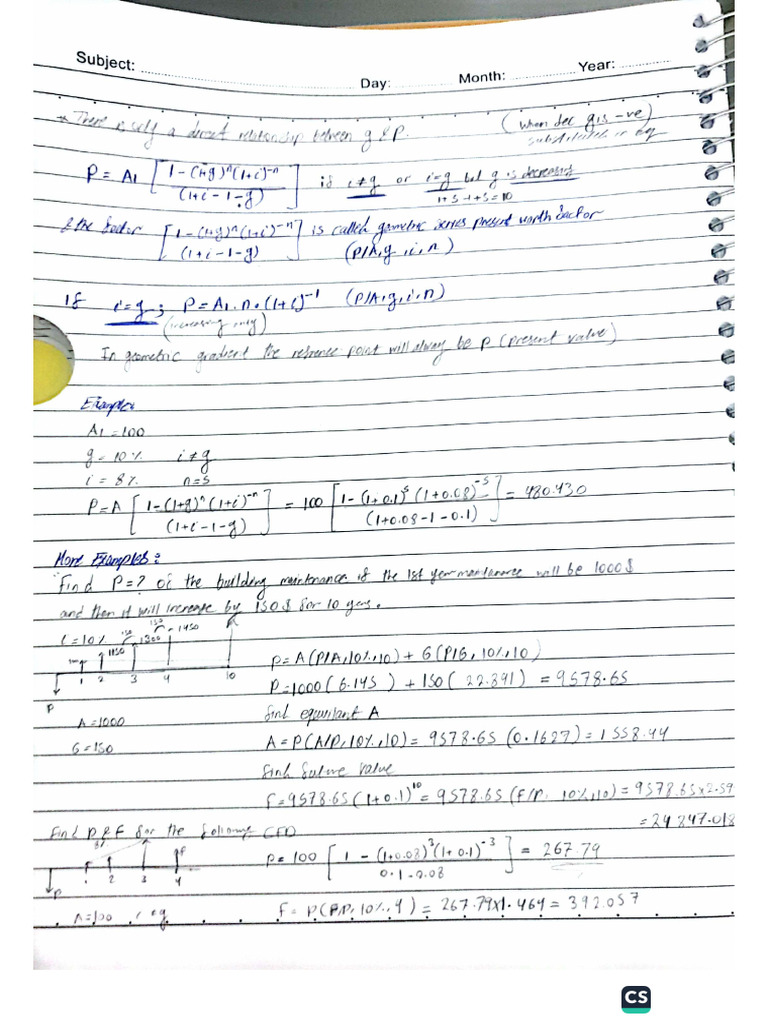 Subject:
Day: Month: Year:
→ There is self a direct relationship between g & P. (when dec g is -ve)
substitute in eq
P = A1 [1-(1+g)^n (1+i)^-n / (1+i-1-g)] if i≠g or i=g but g is decreasing
1+5-1+5=10
& the factor [1-(1+g)^n (1+i)^-n / (1+i-1-g)] is called geometric series present worth factor
(P/A,g,i,n)
If i=g; P=A1.n.(1+i)^-1 (P/A,g,i,n)
(increasing only)
In geometric gradient the refrence point will always be P (present value)
Example:
A1=100
g=10% i≠g
i=8% n=5
P=A [1-(1+g)^n (1+i)^-n / (1+i-1-g)] = 100 [1-(1+0.1)^5 (1+0.08)^-5 / (1+0.08-1-0.1)] = 480.430
More Examples:
Find P=? of the building maintenance if the 1st year maintenance will be 1000$
and then it will increase by 150$ for 10 years.
i=10% 150 150 1450
1150 1300
1 2 3 4 10
P
P=A(P/A,10%,10)+G(P/G,10%,10)
P=1000(6.145)+150(22.891)=9578.65
A=1000
G=150
find equivilant A
A=P(A/P,10%,10)=9578.65(0.1627)=1558.44
find future value
F=9578.65(1+0.1)^10=9578.65(F/P,10%,10)=9578.65×2.59
=24847.018
Find P & F for the following CFD
1 2 3 4
F
P
P=100 [1-(1+0.08)^3 (1+0.1)^-3 / 0.1-0.08] = 267.79
A=100 i≠g
F=P(F/P,10%,4)=267.79×1.464=392.057
CS